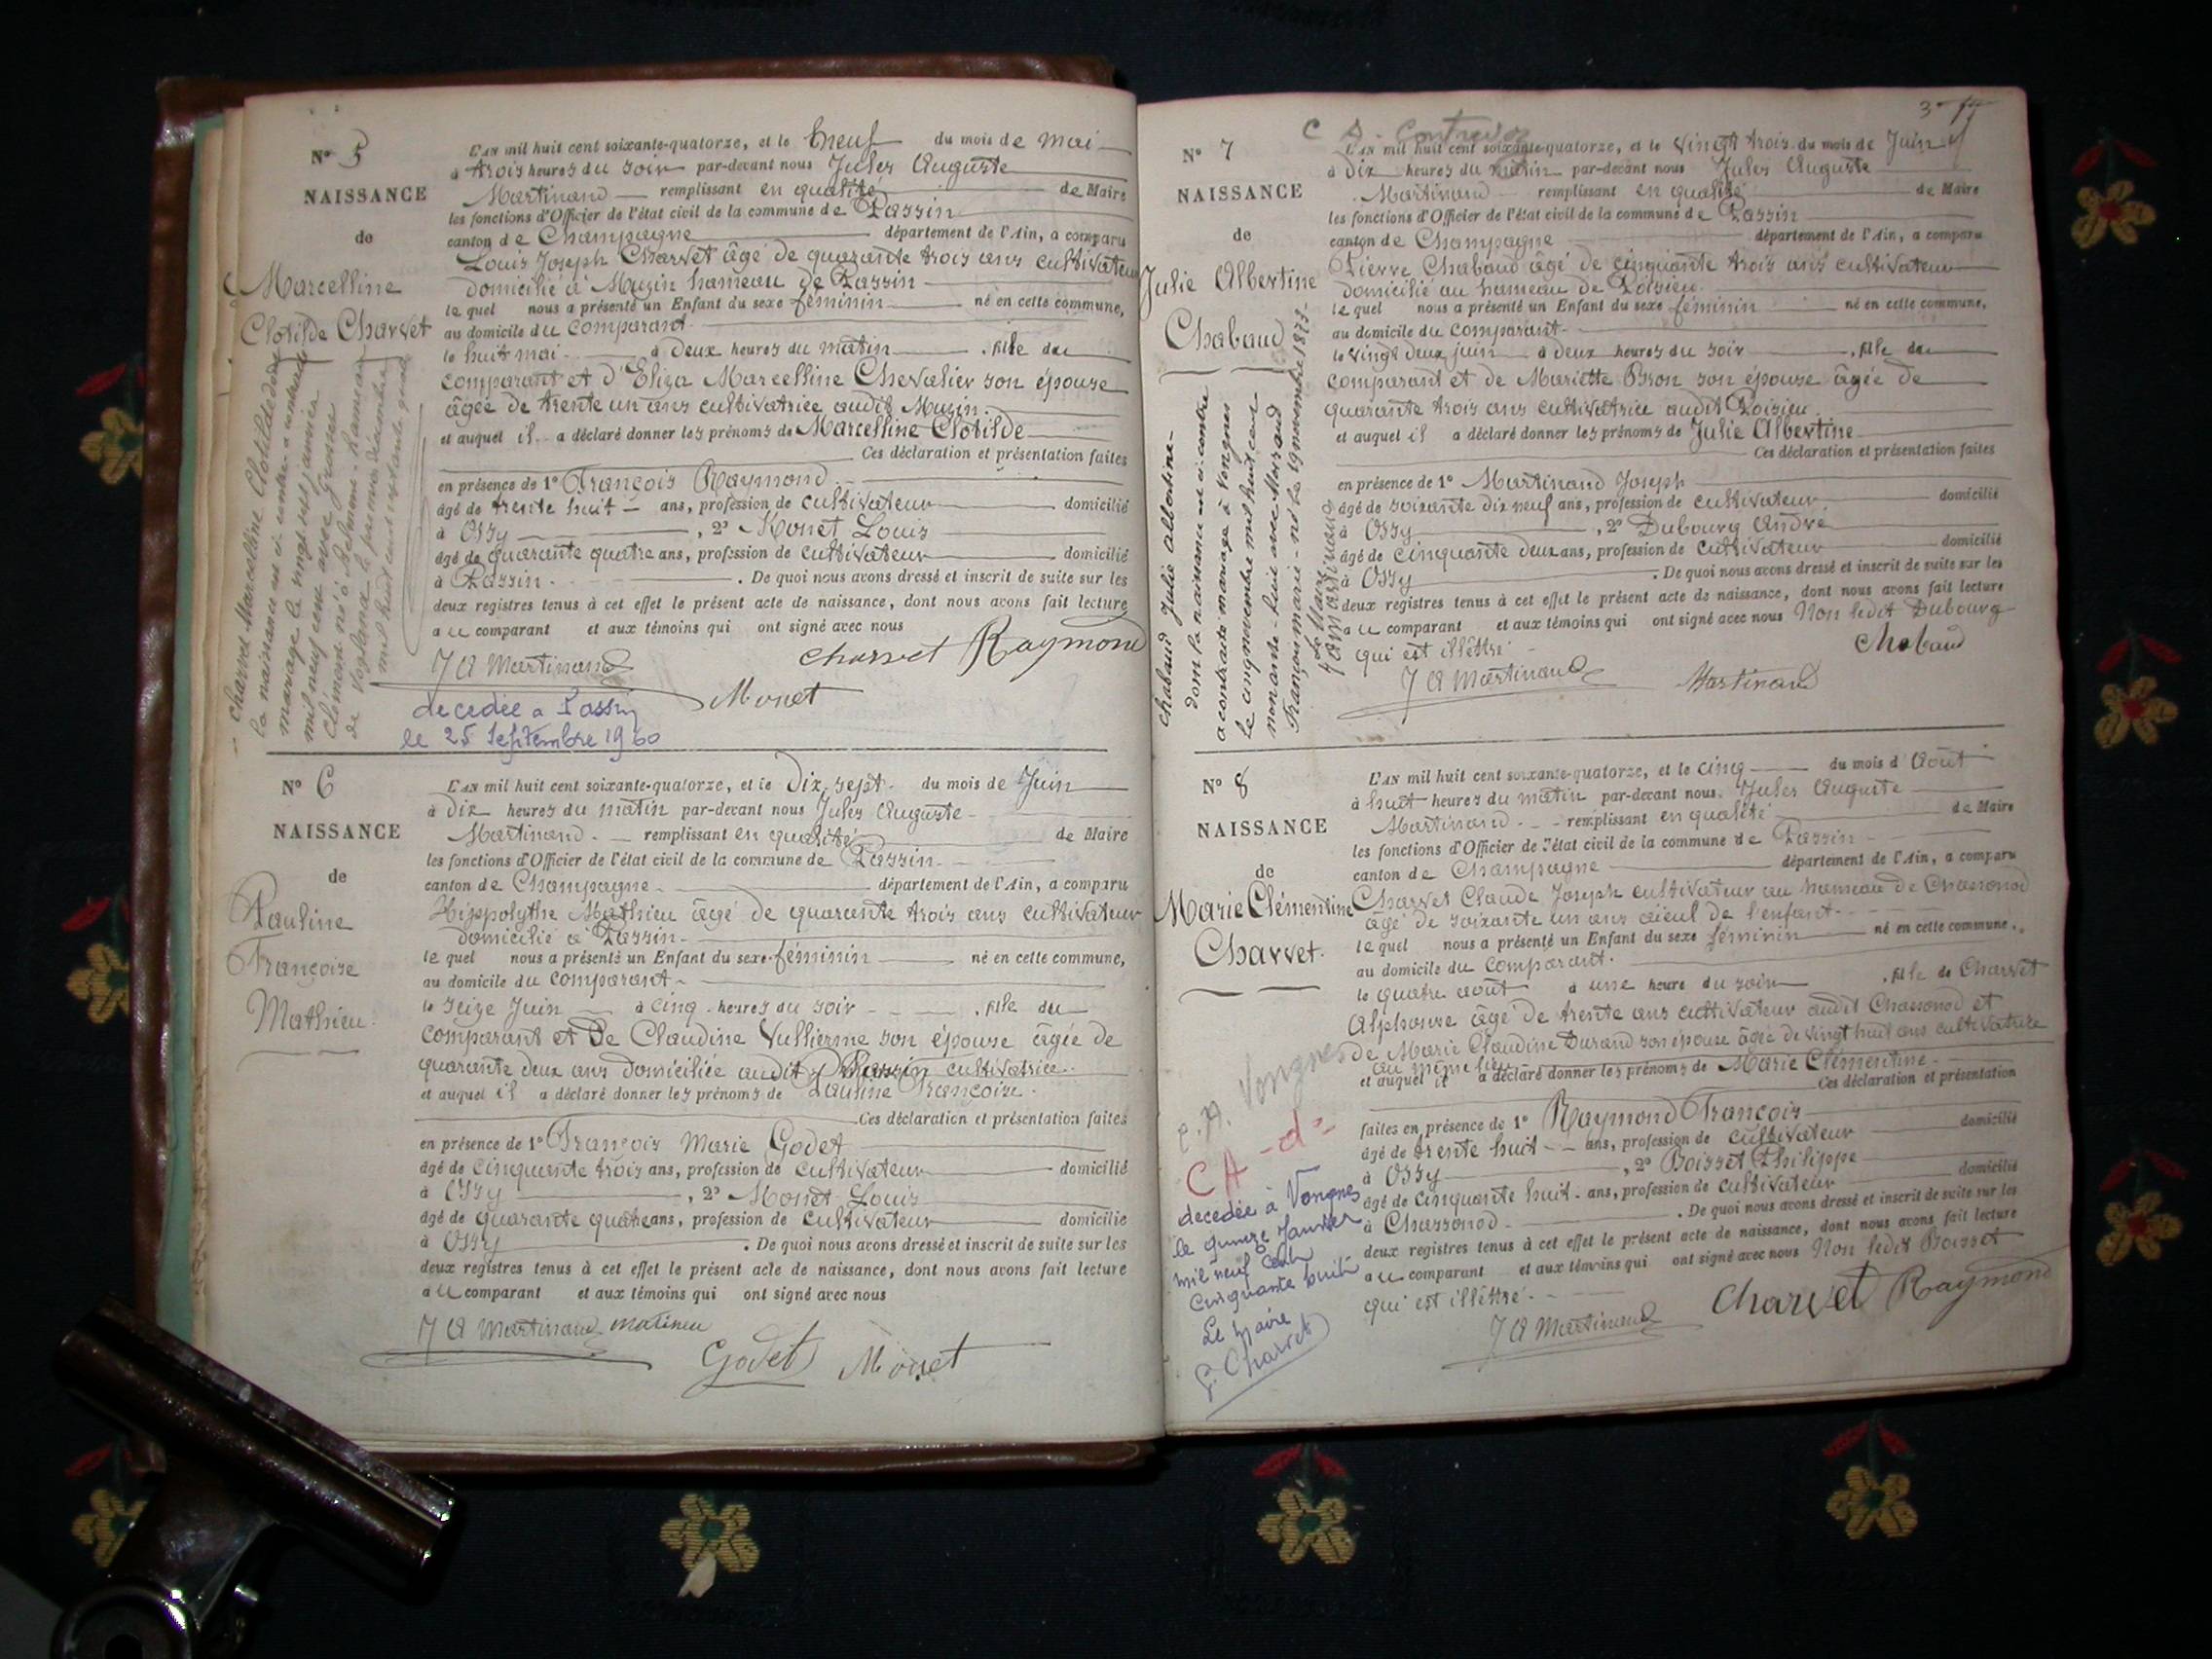 N° 5
NAISSANCE
de
Marcelline
Clotilde Charvet
L'AN mil huit cent soixante-quatorze, et le neuf du mois de mai
à trois heures du soir par-devant nous Jules Auguste
Martinand remplissant en qualité de Maire
les fonctions d'Officier de l'état civil de la commune de Passin
canton de Champagne département de l'Ain, a comparu
Louis Joseph Charvet âgé de quarante trois ans cultivateur
domicilié à Muzin hameau de Passin
le quel nous a présenté un Enfant du sexe féminin né en cette commune,
au domicile du comparant
le huit mai à deux heures du matin, fille du
comparant et d'Eliza Marcelline Chevalier son épouse
âgée de trente un ans cultivatrice audit Muzin.
et auquel il a déclaré donner les prénoms de Marcelline Clotilde
Ces déclaration et présentation faites
en présence de 1° François Raymond
âgé de trente huit ans, profession de cultivateur domicilié
à Ossy, 2° Monet Louis
âgé de quarante quatre ans, profession de cultivateur domicilié
à Passin. De quoi nous avons dressé et inscrit de suite sur les
deux registres tenus à cet effet le présent acte de naissance, dont nous avons fait lecture
au comparant et aux témoins qui ont signé avec nous
J A Martinand Charvet Raymond
Monet
décédée à Passin
le 25 Septembre 1960
Charvet Marcelline Clotilde dont
la naissance est ci-contre a contracté
mariage le vingt sept janvier
mil neuf cent avec
né à hameau
de le premier décembre
mil huit cent soixante
N° 6
NAISSANCE
de
Pauline
Françoise
Mathieu.
L'AN mil huit cent soixante-quatorze, et le Dix sept du mois de Juin
à dix heures du matin par-devant nous Jules Auguste
Martinand remplissant en qualité de Maire
les fonctions d'Officier de l'état civil de la commune de Passin
canton de Champagne département de l'Ain, a comparu
Hippolythe Mathieu âgé de quarante trois ans cultivateur
domicilié à Passin
le quel nous a présenté un Enfant du sexe féminin né en cette commune,
au domicile du comparant
le seize Juin à cinq heures du soir, fille du
comparant et De Claudine Vullierme son épouse âgée de
quarante deux ans domiciliée audit Passin cultivatrice.
et auquel il a déclaré donner les prénoms de Pauline Françoise.
Ces déclaration et présentation faites
en présence de 1° François Marie Godet
âgé de cinquante trois ans, profession de cultivateur domicilié
à Ossy, 2° Monet Louis
âgé de quarante quatre ans, profession de cultivateur domicilié
à Ossy. De quoi nous avons dressé et inscrit de suite sur les
deux registres tenus à cet effet le présent acte de naissance, dont nous avons fait lecture
au comparant et aux témoins qui ont signé avec nous
J A Martinand Mathieu
Godet Monet
C A - Contrevoz
N° 7
NAISSANCE
de
Julie Albertine
Chabaud
L'AN mil huit cent soixante-quatorze, et le vingt trois du mois de Juin
à dix heures du matin par-devant nous Jules Auguste
Martinand remplissant en qualité de Maire
les fonctions d'Officier de l'état civil de la commune de Passin
canton de Champagne département de l'Ain, a comparu
Pierre Chabaud âgé de cinquante trois ans cultivateur
domicilié au hameau de Poisieu
le quel nous a présenté un Enfant du sexe féminin né en cette commune,
au domicile du comparant
le vingt deux juin à deux heures du soir, fille du
comparant et de Mariette Bron son épouse âgée de
quarante trois ans cultivatrice audit Poisieu.
et auquel il a déclaré donner les prénoms de Julie Albertine
Ces déclaration et présentation faites
en présence de 1° Martinand Joseph
âgé de soixante dix neuf ans, profession de cultivateur domicilié
à Ossy, 2° Dubourg André
âgé de cinquante deux ans, profession de cultivateur domicilié
à Ossy. De quoi nous avons dressé et inscrit de suite sur les
deux registres tenus à cet effet le présent acte de naissance, dont nous avons fait lecture
au comparant et aux témoins qui ont signé avec nous Non ledit Dubourg
qui est illétré
Chabaud
J A Martinand Martinand
Chabaud Julie albertine
dont la naissance est ci-contre
a contracté mariage à Vongnes
le cinq novembre mil huit cent
nonante-huit avec
François marie né le 19 novembre 1873
Le Maire
N° 8
NAISSANCE
de
Marie Clémentine
Charvet.
L'AN mil huit cent soixante-quatorze, et le cinq du mois d'Août
à huit heures du matin par-devant nous Jules Auguste
Martinand remplissant en qualité de Maire
les fonctions d'Officier de l'état civil de la commune de Passin
canton de Champagne département de l'Ain, a comparu
Charvet Claude Joseph cultivateur au hameau de Chassonod
âgé de soixante un ans aïeul de l'enfant
le quel nous a présenté un Enfant du sexe féminin né en cette commune,
au domicile du comparant.
le quatre août à une heure du soir, fille de Charvet
Alphonse âgé de trente ans cultivateur audit Chassonod et
de Marie Claudine Durand son épouse âgée de vingt huit ans cultivatrice
au même lieu
et auquel il a déclaré donner les prénoms de Marie Clémentine
Ces déclaration et présentation
faites en présence de 1° Raymond François
âgé de trente huit ans, profession de cultivateur domicilié
à Ossy, 2° Boisset Philippe
âgé de cinquante huit ans, profession de cultivateur domicilié
à Chassonod. De quoi nous avons dressé et inscrit de suite sur les
deux registres tenus à cet effet le présent acte de naissance, dont nous avons fait lecture
au comparant et aux témoins qui ont signé avec nous Non ledit Boisset
qui est illétré.
J A Martinand Charvet Raymond
C. A. Vongnes
C A - d°
décédée à Vongnes
le quinze Janvier
mil neuf cent
cinquante huit
Le Maire
G. Charvet